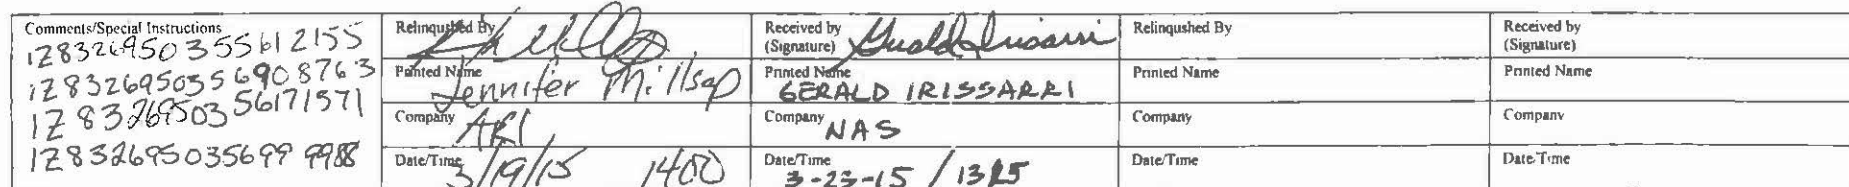 Comments/Special Instructions
1Z8326950355612155
1Z8326950356908763
1Z8326950356171571
1Z8326950356999988
Relinqushed By
Printed Name
Jennifer Millsap
Company
ARI
Date/Time
3/19/15 1400
Received by
(Signature)
Gerald Irissarri
Printed Name
GERALD IRISSARRI
Company
NAS
Date/Time
3-23-15 / 1325
Relinqushed By
Printed Name
Company
Date/Time
Received by
(Signature)
Printed Name
Company
Date/Time